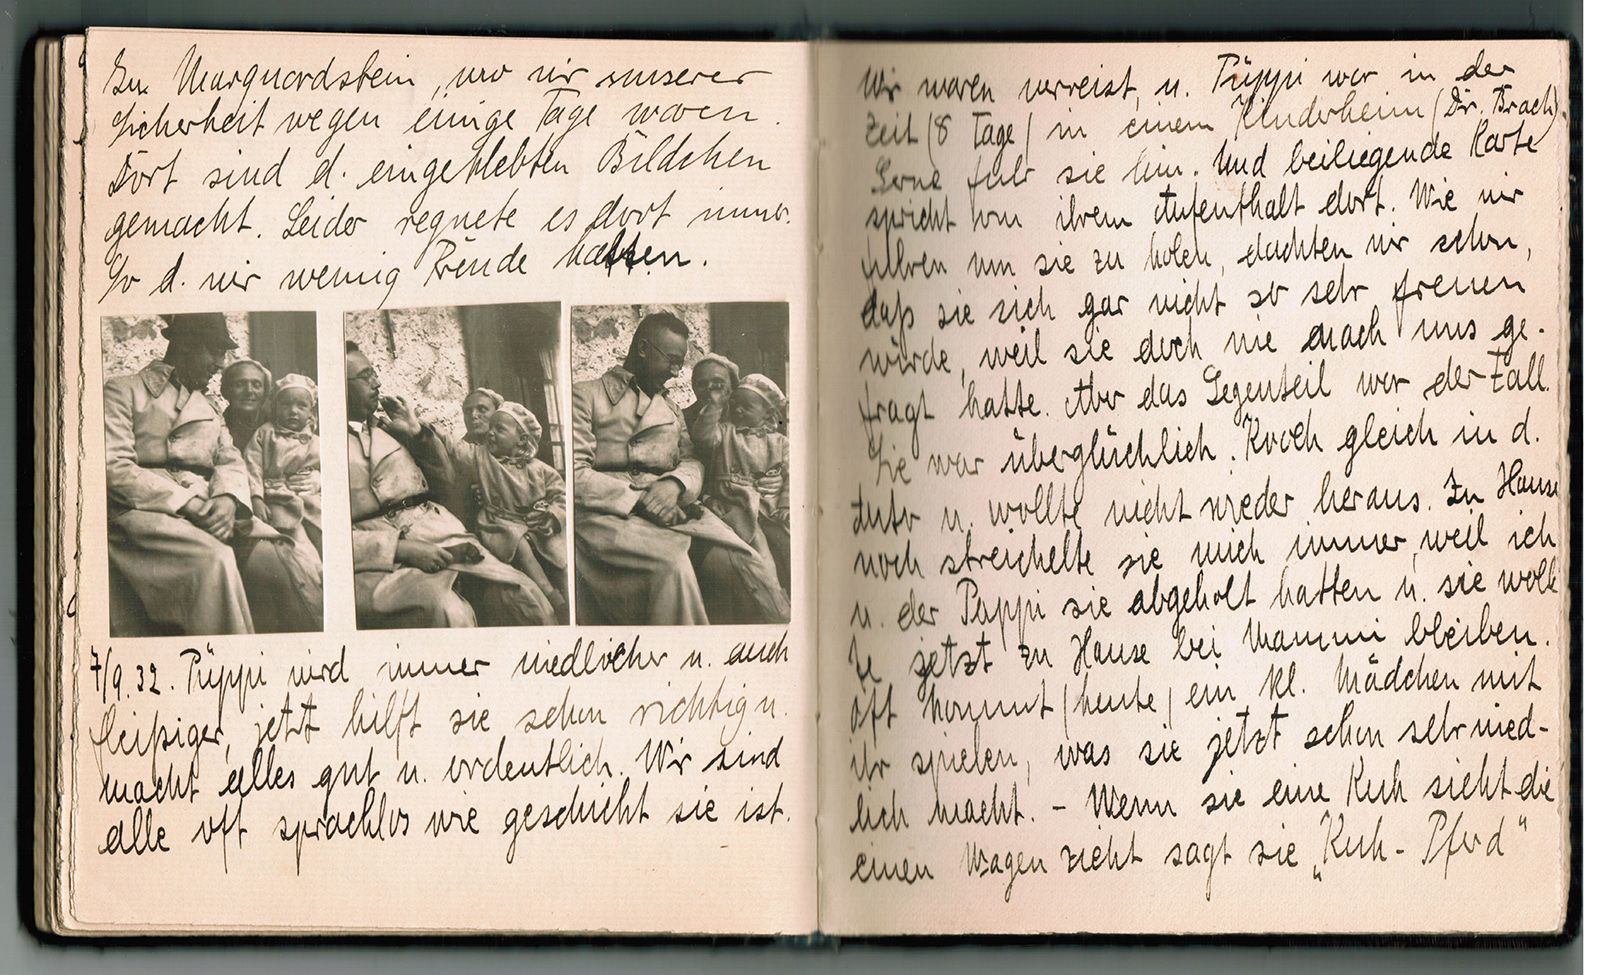 In Marquardstein, wo wir unserer
Sicherheit wegen einige Tage waren.
Dort sind d. eingeklebten Bildchen
gemacht. Leider regnete es dort immer.
So d. wir wenig Freude hatten.
7/9.32. Püppi wird immer niedlicher u. auch
fleißiger, jetzt hilft sie schon richtig u.
macht alles gut u. ordentlich. Wir sind
alle oft sprachlos wie geschickt sie ist.
Wir waren verreist, u. Püppi war in der
Zeit (8 Tage) in einem Kinderheim (Dr. Brach).
Gerne fuhr sie hin. Und beiliegende Karte
spricht von ihrem Aufenthalt dort. Wie wir
fuhren um sie zu holen, dachten wir schon,
daß sie sich gar nicht so sehr freuen
würde, weil sie doch nie nach uns ge-
fragt hatte. Aber das Gegenteil war der Fall.
Sie war überglücklich. Kroch gleich in d.
Auto u. wollte nicht wieder heraus. Zu Hause
noch streichelte sie mich immer, weil ich
u. der Pappi sie abgeholt hatten u. sie woll
te jetzt zu Hause bei Mammi bleiben.
Oft kommt (heute) ein kl. Mädchen mit
ihr spielen, was sie jetzt schon sehr nied-
lich macht. – Wenn sie eine Kuh sieht die
einen Wagen zieht sagt sie „Kuh - Pferd"